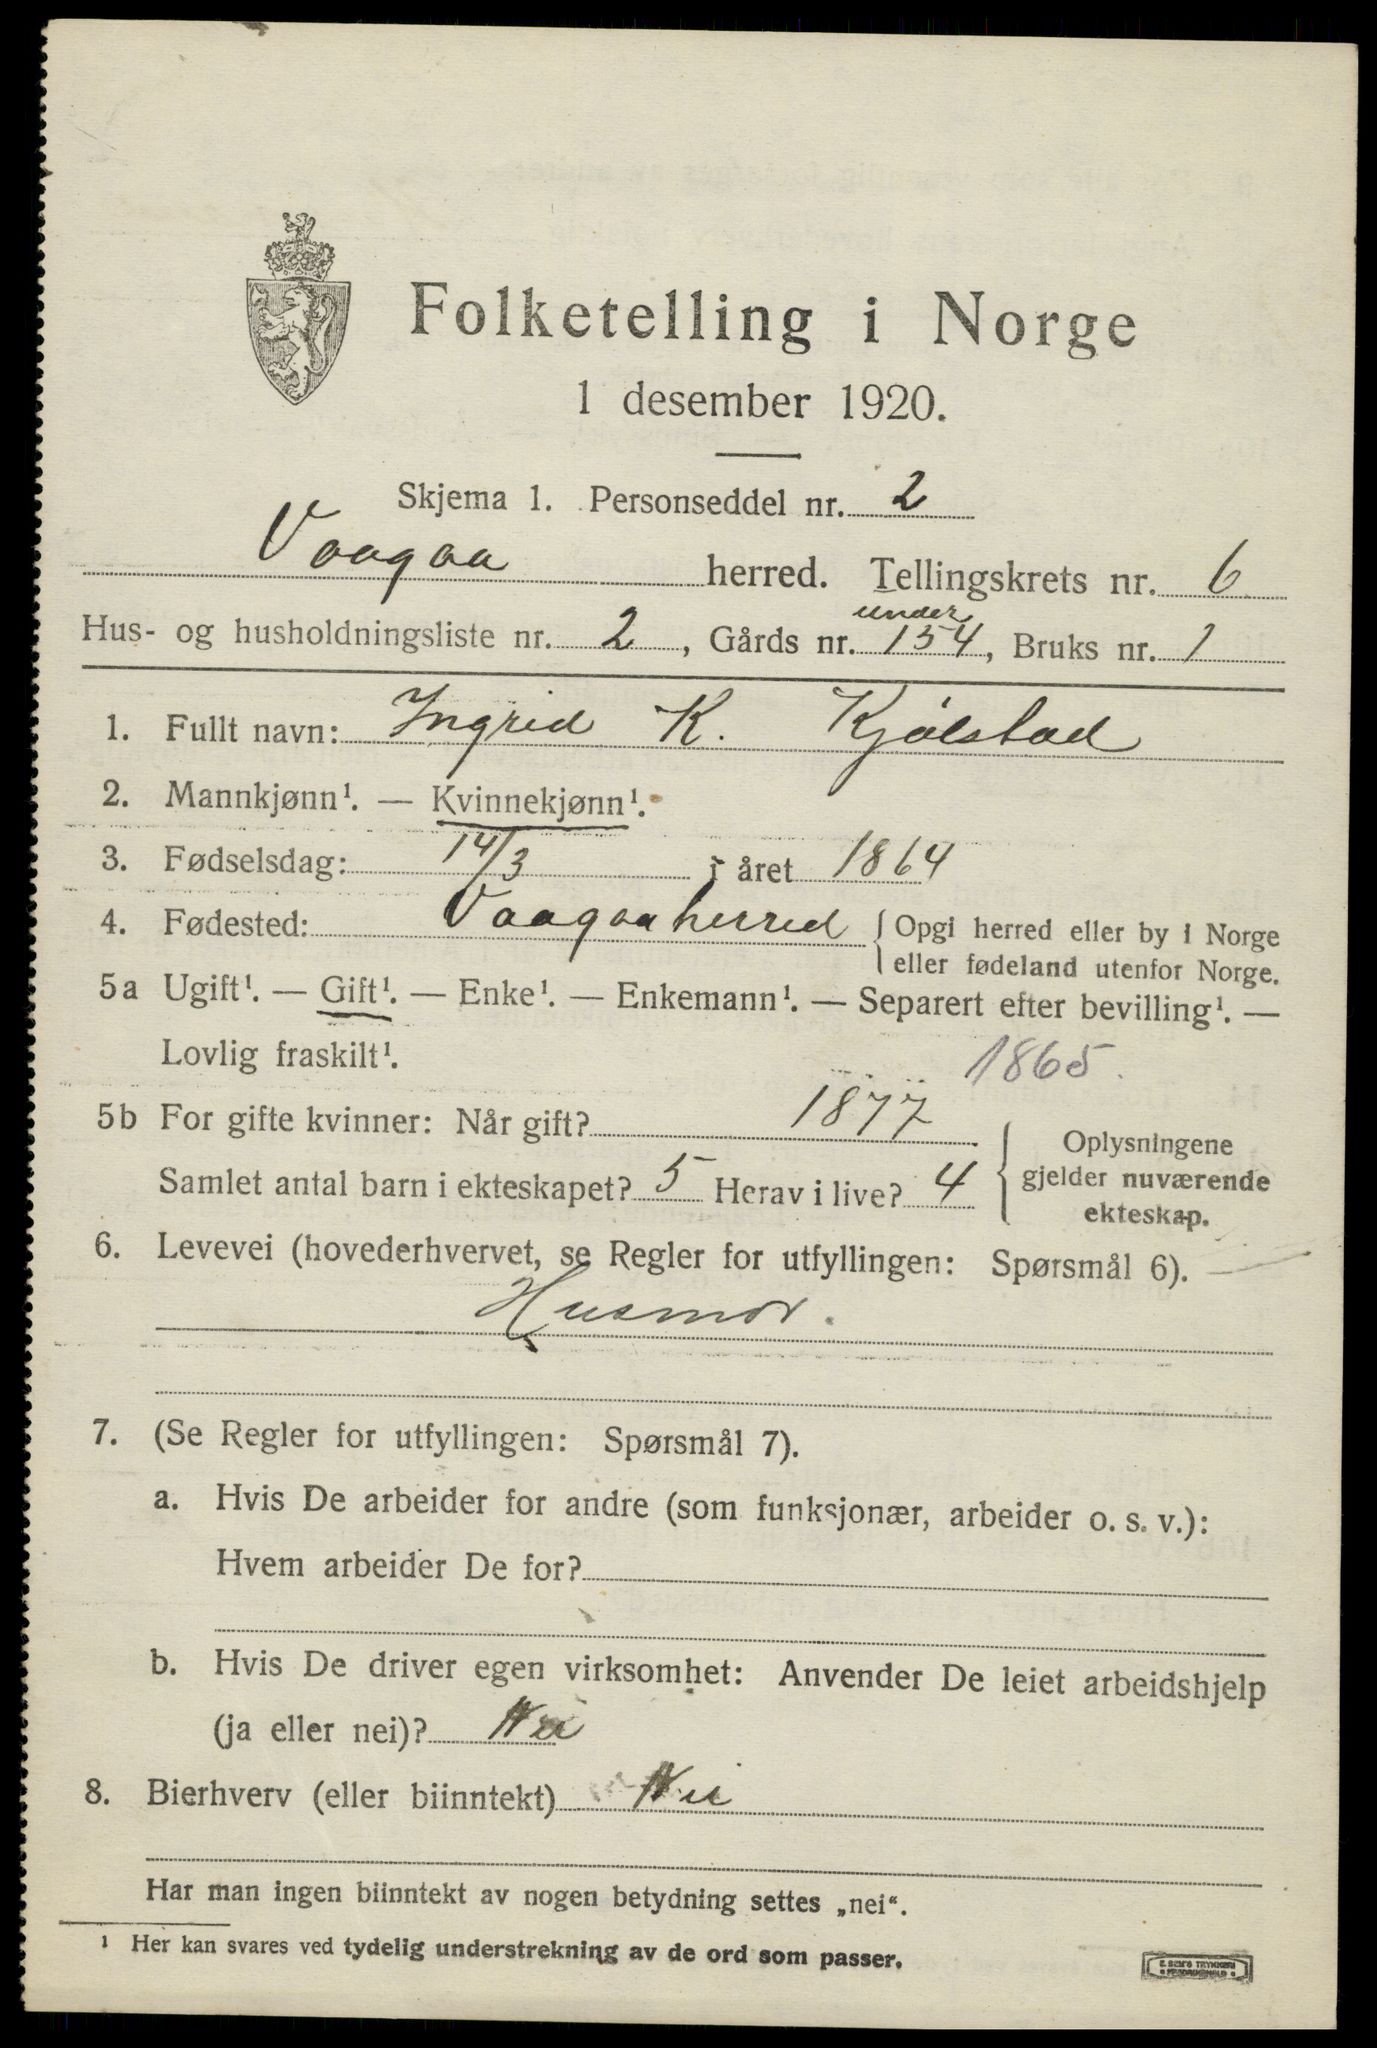 Folketelling i Norge
1 desember 1920.
Skjema 1. Personseddel nr. 2
Vaagaa herred. Tellingskrets nr. 6
under
Hus- og husholdningsliste nr. 2, Gårds nr. 154, Bruks nr. 1
1. Fullt navn: Ingrid K. Kjölstad
2. Mannkjønn¹. — Kvinnekjønn¹.
3. Fødselsdag: 14/3 i året 1864
4. Fødested: Vaagaaherred { Opgi herred eller by i Norge
eller fødeland utenfor Norge.
5a Ugift¹. — Gift¹. — Enke¹. — Enkemann¹. — Separert efter bevilling¹. —
Lovlig fraskilt¹. 1865.
5b For gifte kvinner: Når gift? 1877
Samlet antal barn i ekteskapet? 5 Herav i live? 4
{ Oplysningene
gjelder nuværende
ekteskap.
6. Levevei (hovederhvervet, se Regler for utfyllingen: Spørsmål 6).
Husmor.
7. (Se Regler for utfyllingen: Spørsmål 7).
a. Hvis De arbeider for andre (som funksjonær, arbeider o. s. v.):
Hvem arbeider De for?
b. Hvis De driver egen virksomhet: Anvender De leiet arbeidshjelp
(ja eller nei)? Nei
8. Bierhverv (eller biinntekt) Nei
Har man ingen biinntekt av nogen betydning settes „nei“.
¹ Her kan svares ved tydelig understrekning av de ord som passer.